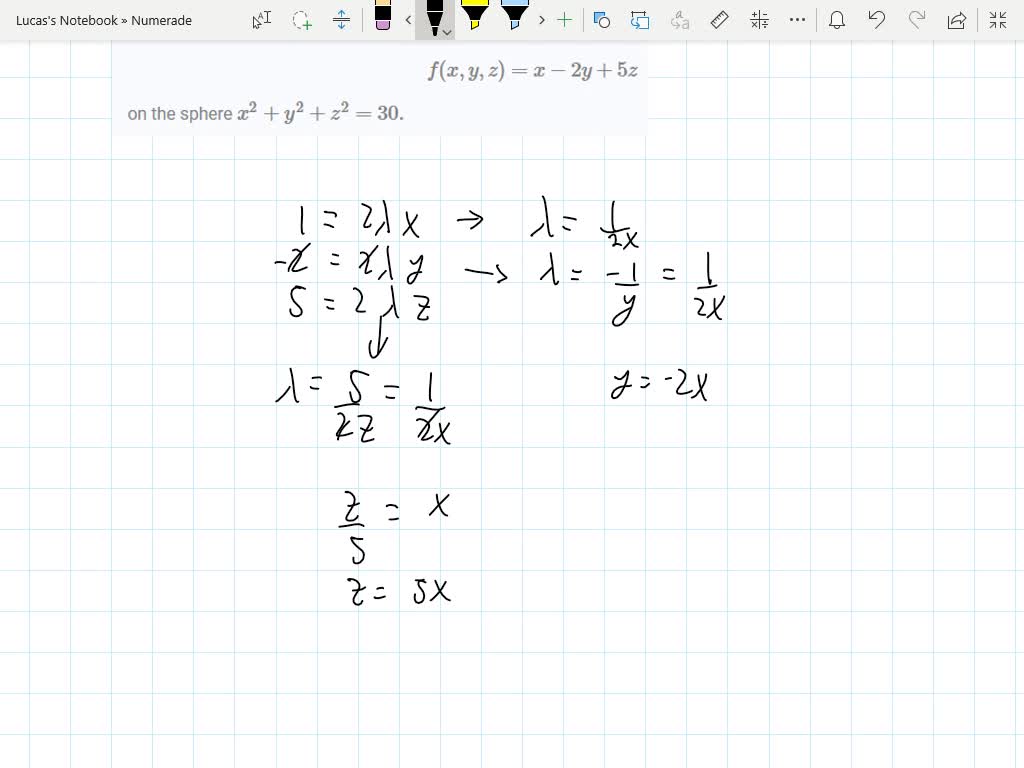 Lucas's Notebook » Numerade
f(x, y, z) = x − 2y + 5z
on the sphere x² + y² + z² = 30.
1 = 2λx → λ = 1/2x
-2 = 2λy → λ = -1/y = 1/2x
5 = 2λz
↓
λ = 5/2z = 1/2x
y = -2x
z/5 = x
z = 5x